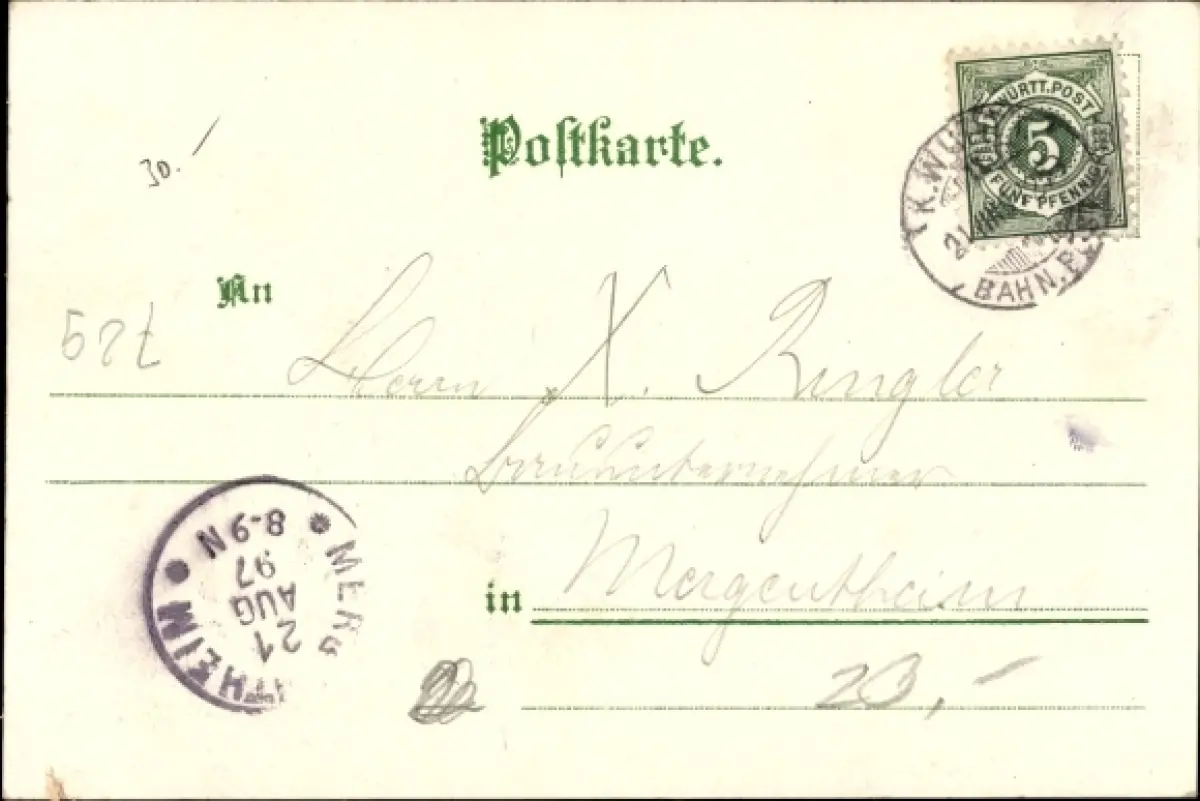 WÜRTT. POST
5
FÜNF PFENNIG
K. WÜ
21
BAHN. P
30.-
Postkarte.
An
Herrn X. Ringler
Bauunternehmer
in Mergentheim
MERG THEIM
21
AUG
97
8-9N
23,-